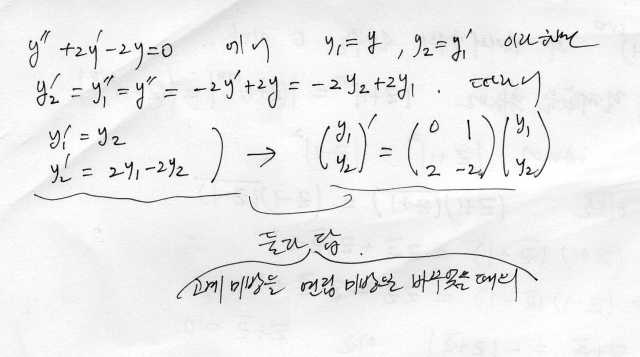 y″ + 2y′ - 2y = 0 에서 y₁ = y , y₂ = y₁′ 이라 하면
y₂′ = y₁″ = y″ = -2y′ + 2y = -2y₂ + 2y₁ . 따라서
y₁′ = y₂
y₂′ = 2y₁ - 2y₂ ) → (y₁ y₂)′ = (0 1 2 -2) (y₁ y₂)
둘다 답.
고계 미방을 연립 미방으로 바꾸었을 때의